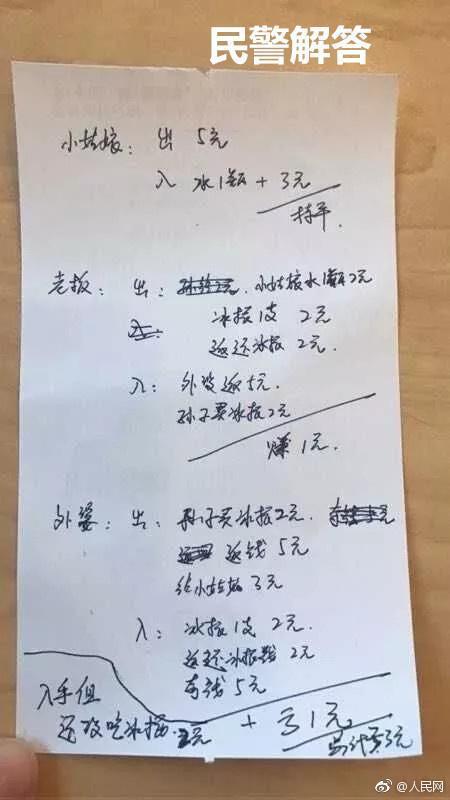 民警解答
小姑娘：出 5元
入 水1瓶 + 3元
持平
老板：出：小姑娘水1瓶2元
冰棍1支 2元
返还冰棍 2元
入：外婆返5元
孙子买冰棍2元
赚1元
外婆：出：孙子买冰棍2元
返钱 5元
给小姑娘 3元
入：冰棍1支 2元
返还冰棍钱 2元
5元
入手但
还没吃冰棍 元
+ 亏1元
共计亏3元
@人民网